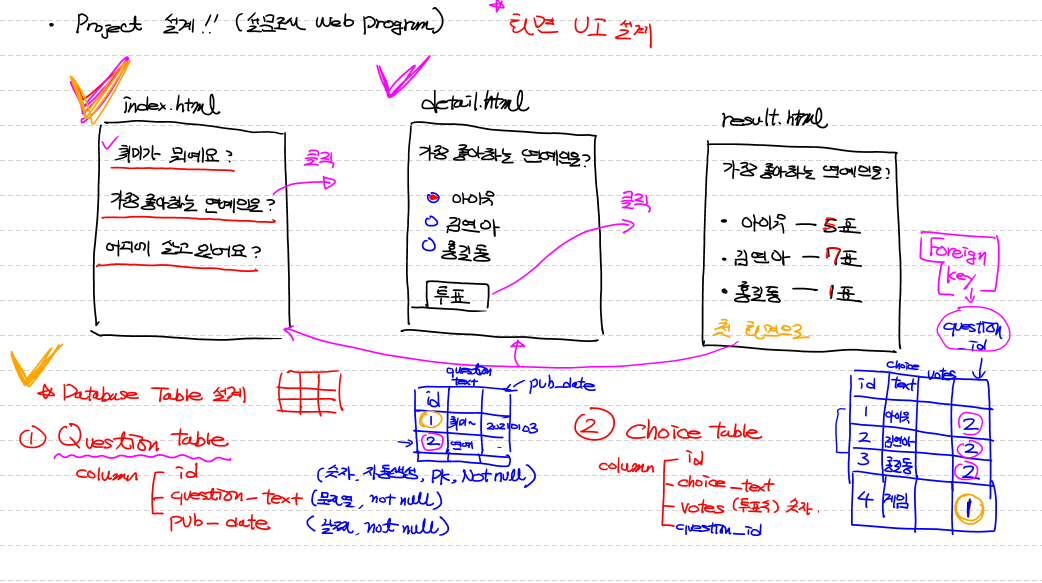 · Project 설계!! (설문조사 web program)
* 화면 UI 설계
index.html
취미가 뭐예요?
가장 좋아하는 연예인은?
어디에 살고 있어요?
클릭
detail.html
가장 좋아하는 연예인은?
아이유
김연아
홍길동
투표
클릭
result.html
가장 좋아하는 연예인은?
· 아이유 — 5표
· 김연아 — 7표
· 홍길동 — 1표
첫 화면으로
Foreign
key
question
_id
* Database Table 설계
① Question table
column
id (숫자, 자동생성, PK, Not null)
question_text (문자열, not null)
pub_date (날짜, not null)
question
text
pub_date
id
1 취미~ 20210103
2 연예 -
② Choice table
column
id
choice_text
votes (투표수) 숫자.
question_id
choice votes
id text
1 아이유 2
2 김연아 2
3 홍길동 2
4 게임 1